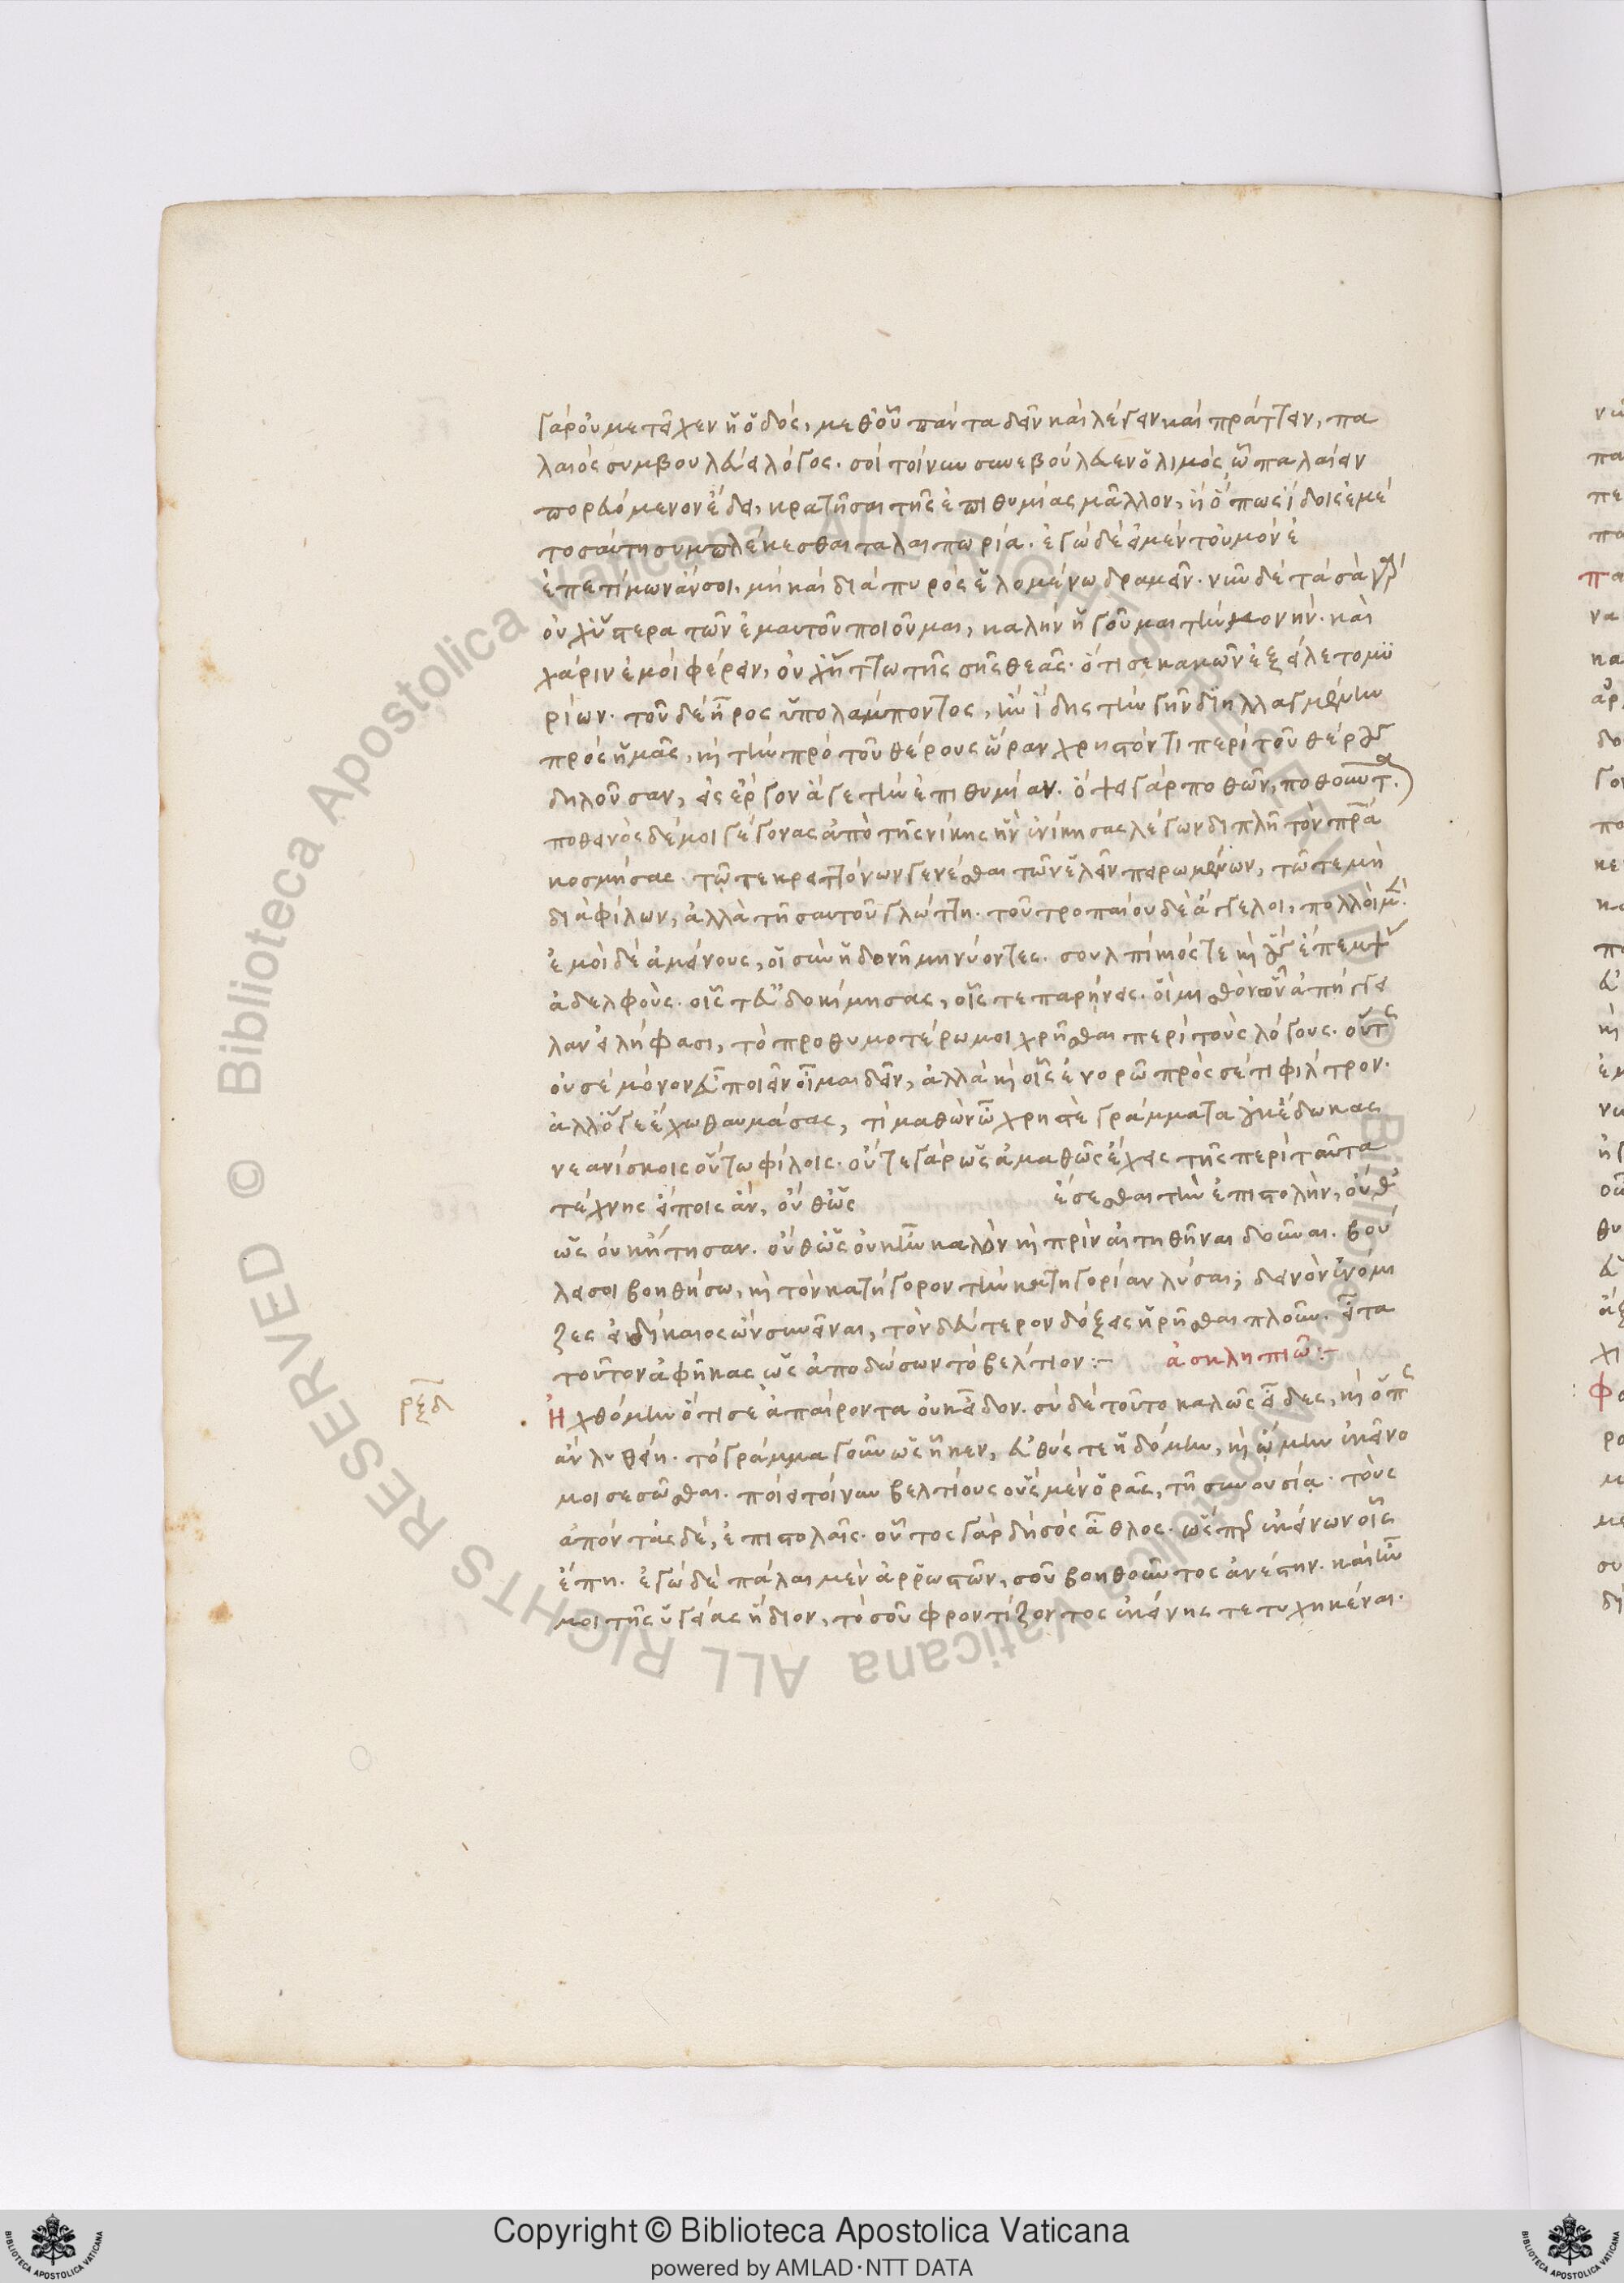 γὰρ οὐ μετεῖχεν ἡ ὁδός, μεθ' οὗ πάντα δεῖν καὶ λέγειν καὶ πράττειν, πα
λαιὸς συμβουλεύει λόγος. σοὶ τοίνυν συνεβούλευεν ὁ λιμός, ᾧ παλαίειν
πορευόμενον ἔδει, κρατῆσαι τῆς ἐπιθυμίας μᾶλλον, ἢ ὅπως ἴδοις ἐμὲ
τοσαύτη συμπλέκεσθαι ταλαιπωρία. ἐγὼ δὲ εἰ μὲν τοὐμὸν ἐ
ἐπετίμων ἄν σοι, μὴ καὶ διὰ πυρὸς ἑλομένω δραμεῖν. νῦν δὲ τὰ σὰ γὰρ
οὐχ ὕστερα τῶν ἐμαυτοῦ ποιοῦμαι, καλὴν ἡγοῦμαι τὴν μονήν. καὶ
χάριν ἐμοὶ φέρειν, οὐχ ἥττω τῆς σῆς θέας. ὅτι σε κακῶν ἐξείλετο μυ
ρίων. τοῦ δὲ ἦρος ὑπολάμποντος, ἢν ἴδης τὴν γῆν διηλλαγμένην
πρὸς ἡμᾶς, καὶ τὴν πρὸ τοῦ θέρους ὥραν χρηστόν τι περὶ τοῦ θέρους
δηλοῦσαν, εἰς ἔργον ἄγε τὴν ἐπιθυμίαν. ὄψει γὰρ ποθῶν, ποθοῦντα.
ποθεινὸς δέ μοι γέγονας ἀπὸ τῆς νίκης ἣν ἐνίκησας λέγων διπλῆ τὸν πατέρα
κοσμήσας τῶ τε κρειττόνων γενέσθαι τῶν ἑλεῖν πειρωμένων, τῶ τε μὴ
διὰ φίλων, ἀλλὰ τῆ σαυτοῦ γλώττη. τοῦ τροπαίου δὲ ἄγγελοι, πολλοὶ μὲν
ἐμοὶ δὲ ἀμείνους, οἱ σὺν ἡδονῆ μηνύοντες. σουλπίκιός τε καὶ οὓς ἔπεμψας
ἀδελφούς. οἷς τ' εὐδοκίμησας, οἷς τε παρήνεις. οἳ μισθὸν ὧν ἀπήγγει
λαν εἰλήφασι, τὸ προθυμοτέρω μοι χρῆσθαι περὶ τοὺς λόγους. οὕτως
οὐ σὲ μόνον εὖ ποιεῖν οἶμαι δεῖν, ἀλλὰ καὶ οἷς ἐνορῶ πρὸς σέ τι φίλτρον.
ἀλλ' ὅ γε ἔχω θαυμάσας, τί μαθὼν ὦ χρηστὲ γράμματα οὐκ ἔδωκας
νεανίσκοις οὕτω φίλοις. οὔτε γὰρ ὡς ἀμαθῶς ἔχεις τῆς περὶ ταῦτα
τέχνης εἴποις ἄν, οὔθ' ὡς ἔσεσθαι τὴν ἐπιστολήν, οὔθ'
ὡς οὐκ ἤτησαν. οὔθ' ὡς οὐκ ἦν καλὸν καὶ πρὶν αἰτηθῆναι δοῦναι. βού
λει σοι βοηθήσω, καὶ τὸν κατήγορον τὴν κατηγορίαν λύσαι; δεινὸν ἐνόμι
ζες εἰ δίκαιος ὢν συνεῖναι, τὸν δεύτερον δόξεις ἡρῆσθαι πλοῦν. εἶτα
τοῦτον ἀφῆκας ὡς ἀποδώσων τὸ βέλτιον :- ἀσκληπιῶ :-
ρξδ
Ἠχθόμην ὅτι σε ἀπαίροντα οὐκ εἶδον. σὺ δὲ τοῦτο καλῶς εἶδες, καὶ ὅπως
ἂν λυθείη. τὸ γράμμα γοῦν ὡς ἧκεν, εὐθύς τε ἡδόμην, καὶ ᾤμην ἐκεῖνό
μοι σεσῶσθαι. ποίει τοίνυν βελτίους οὓς μὲν ὁρᾶς, τῆ συνουσία. τοὺς
ἀπόντας δέ, ἐπιστολαῖς. οὗτος γὰρ δὴ σὸς ἆθλος. ὥσπερ ἐκείνων οἷς
ἔπη. ἐγὼ δὲ πάλαι μὲν ἀρρωστῶν, σοῦ βοηθοῦντος ἀνέστην. καὶ ἦν
μοι τῆς ὑγείας ἥδιον, τὸ σοῦ φροντίζοντος ἐκείνης τετυχηκέναι.
© Biblioteca Apostolica Vaticana ALL RIGHTS RESERVED
Copyright © Biblioteca Apostolica Vaticana
powered by AMLAD·NTT DATA